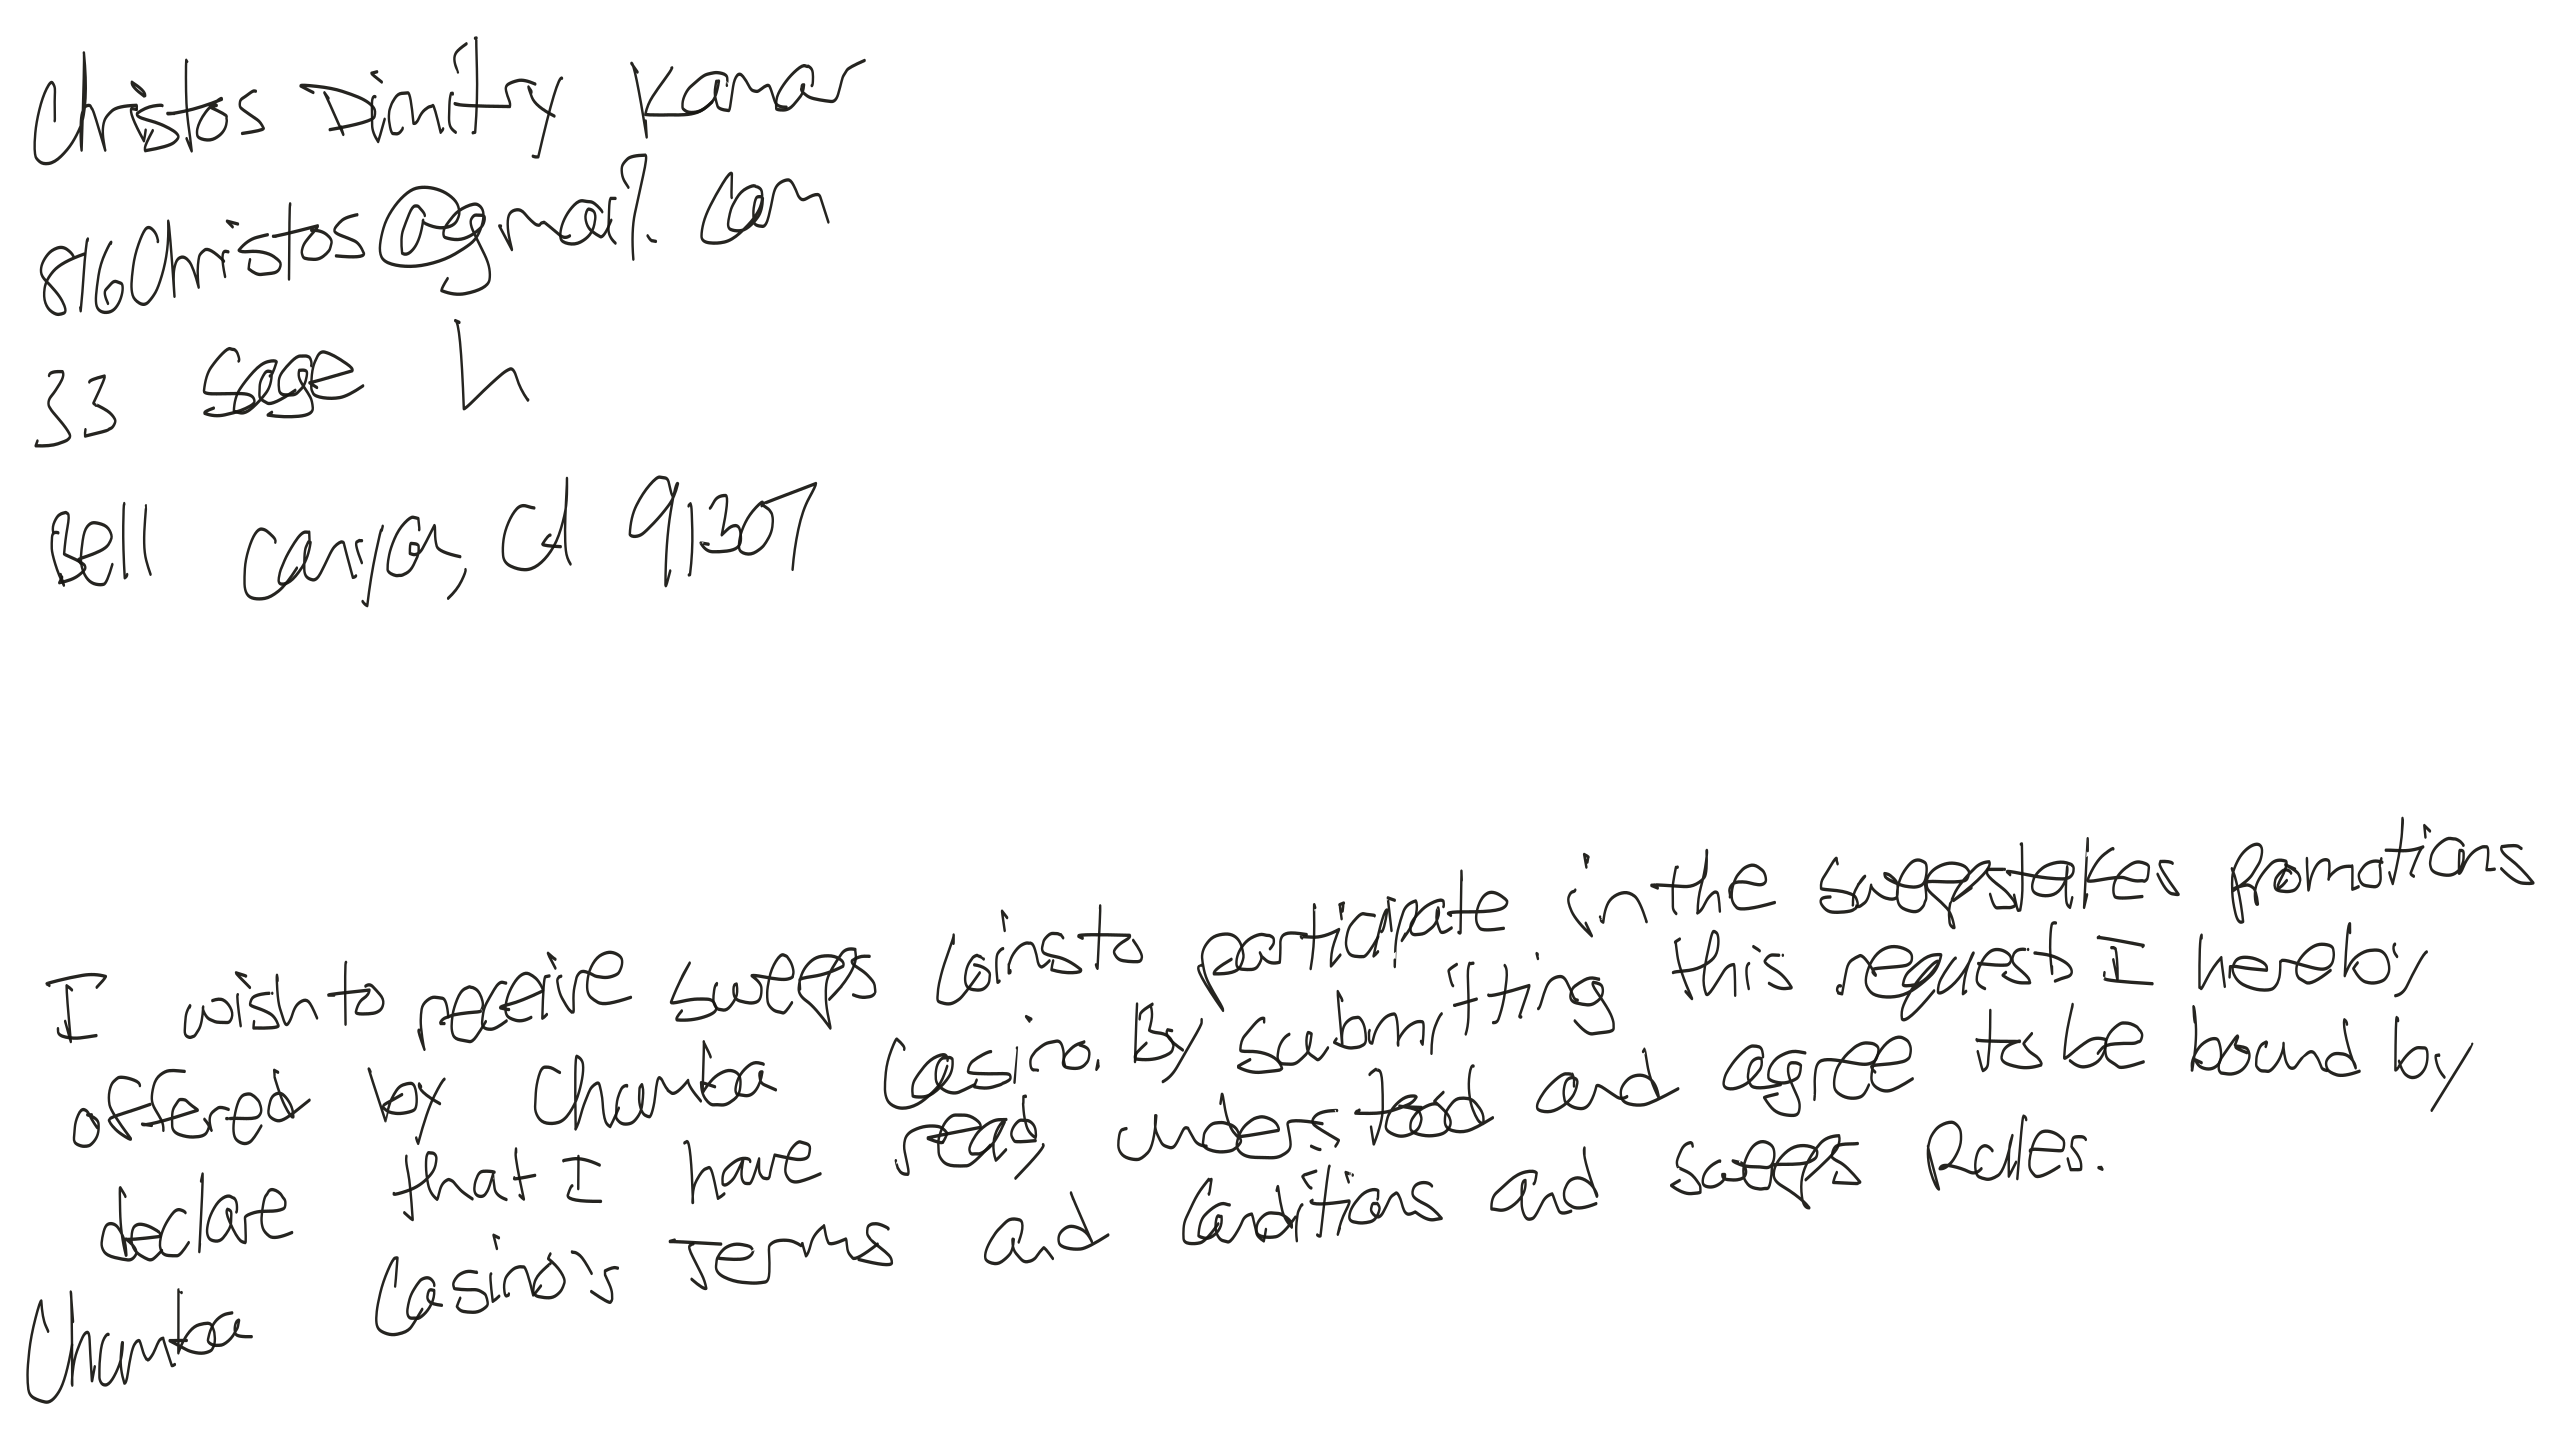 Christos Dimitry Kamar
816Christos@gmail.com
33 Sage Ln
Bell Canyon, CA 91307
I wish to receive sweeps coins to participate in the sweepstakes promotions
offered by Chumba Casino. By submitting this request I hereby
declare that I have read, understood and agree to be bound by
Chumba Casino's Terms and Conditions and Sweeps Rules.